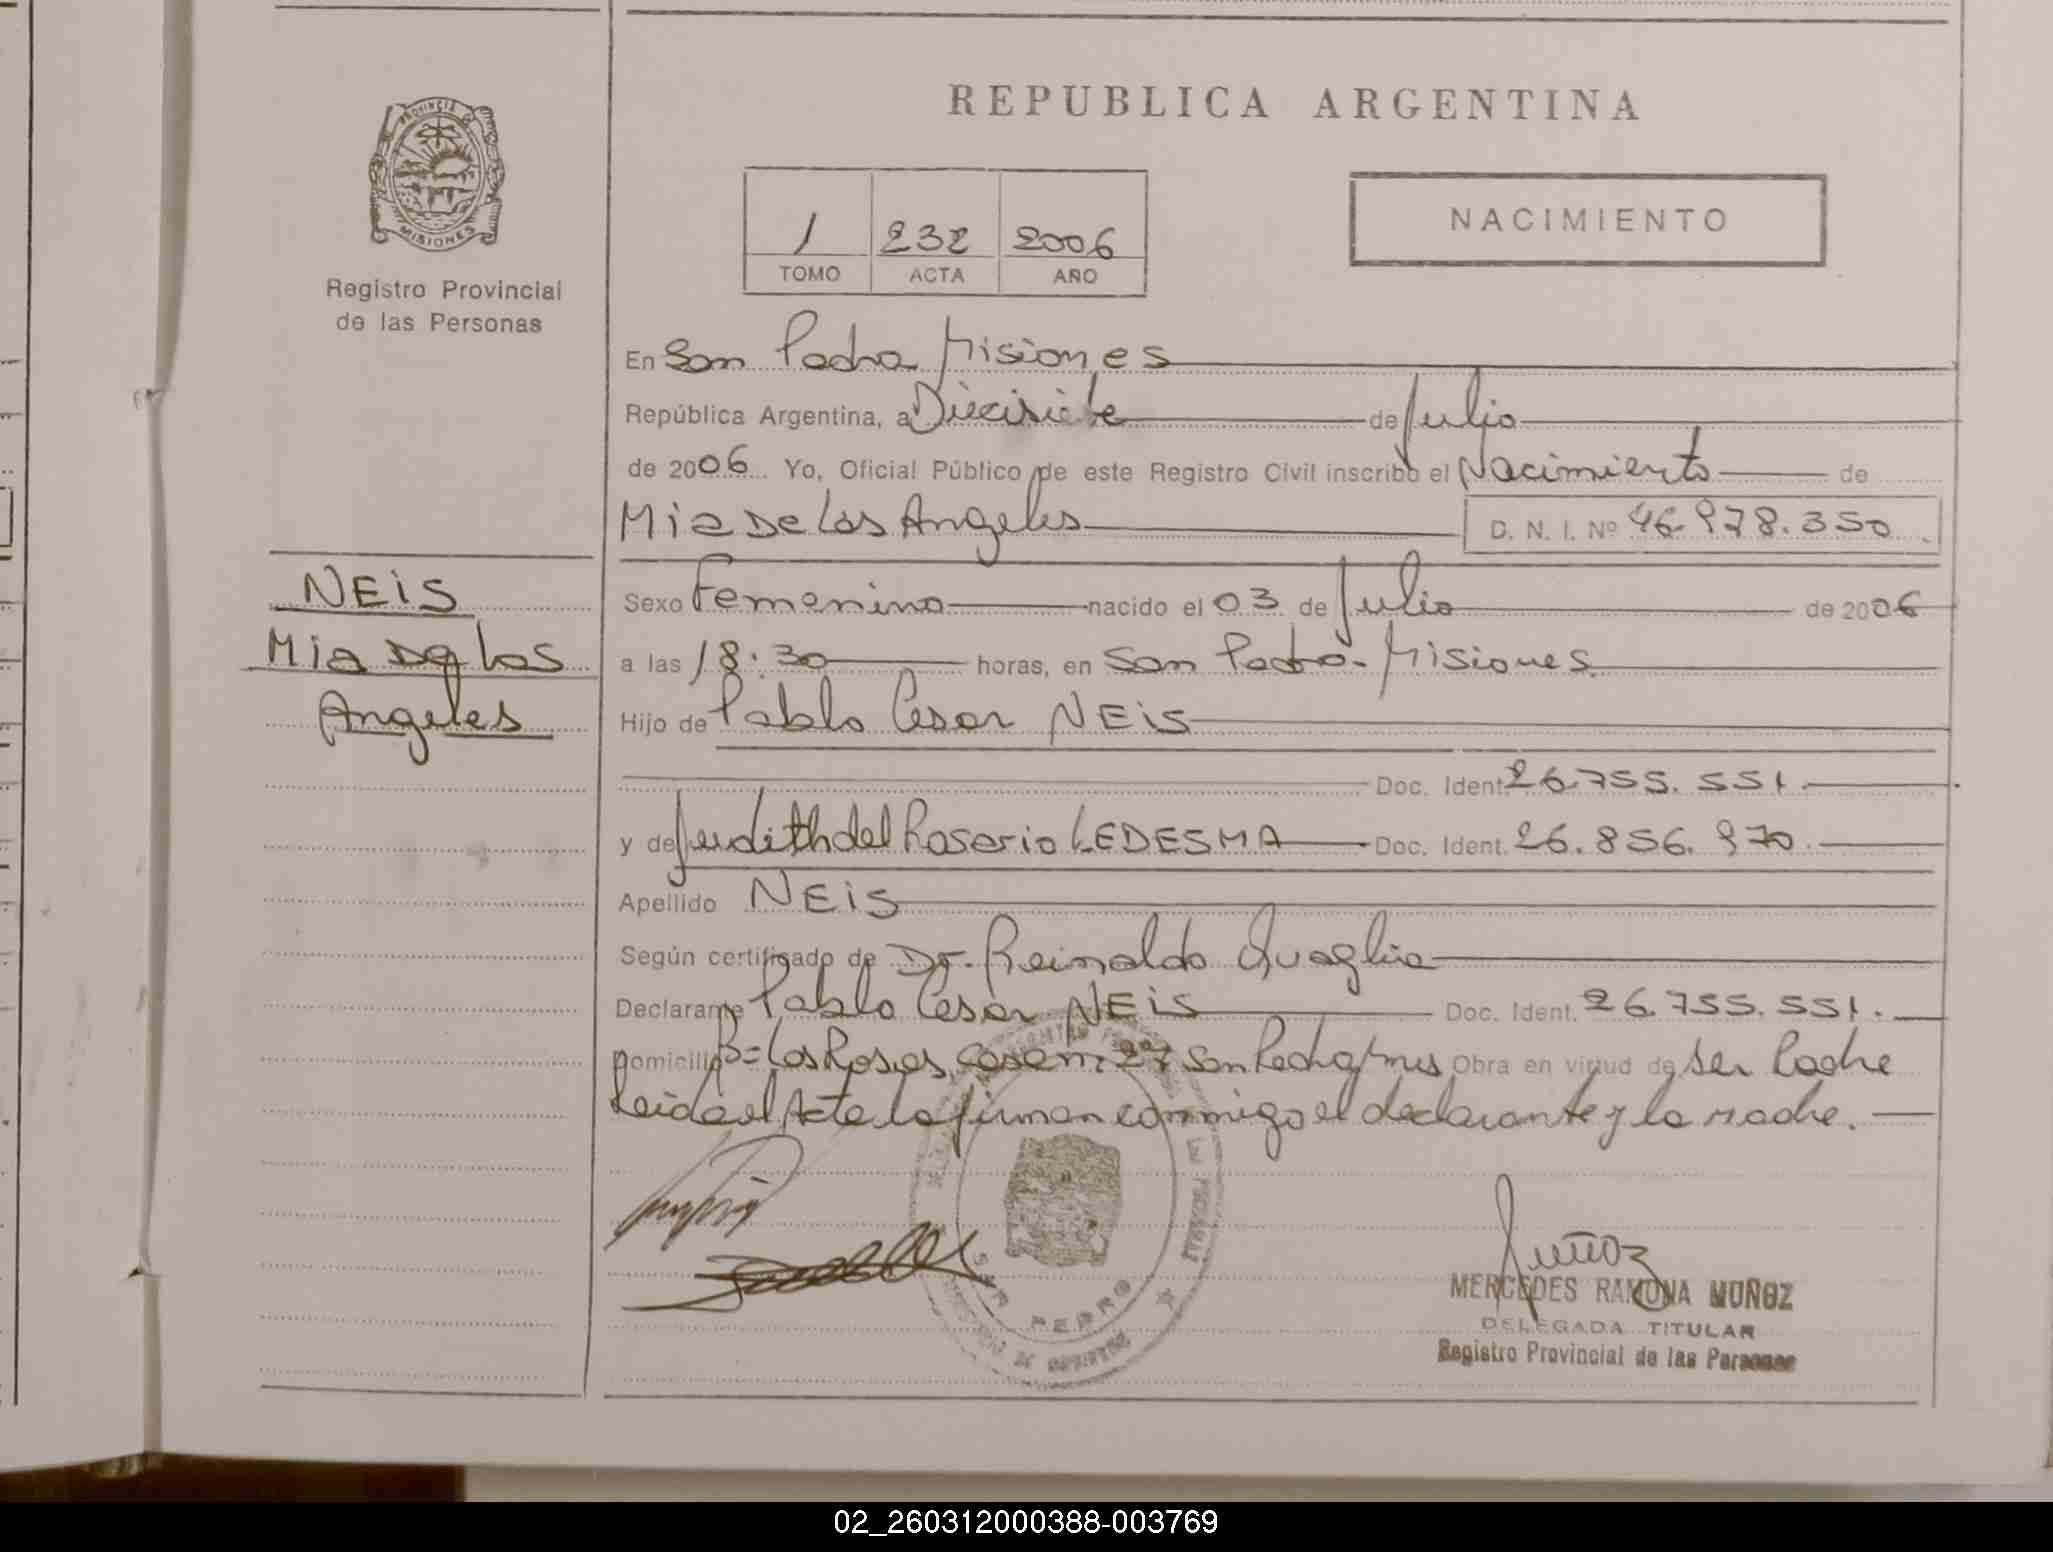 REPUBLICA ARGENTINA
PROVINCIA DE
MISIONES
Registro Provincial
de las Personas
1 232 2006
TOMO ACTA AÑO
NACIMIENTO
En San Pedro Misiones
República Argentina, a Diecisiete de Julio
de 2006 Yo, Oficial Público de este Registro Civil inscribo el Nacimiento de
Mia De los Angeles D. N. I. Nº 46.978.350
NEIS
Mia De los
Angeles
Sexo Femenino nacido el 03 de Julio de 2006
a las 18:30 horas, en San Pedro - Misiones
Hijo de Pablo Cesar NEIS
Doc. Ident. 26.755.551.
y de Judith del Rosario LEDESMA Doc. Ident. 26.856.970.
Apellido NEIS
Según certificado de Dr. Reinaldo Quaglia
Declarante Pablo Cesar NEIS Doc. Ident. 26.755.551.
Domicilio B= Los Rosas, casa n: 27 San Pedro, Mnes Obra en virtud de ser Padre
Leida el Acta la firman conmigo el declarante y la madre.
SAN PEDRO
Muñoz
MERCEDES RAMONA MUÑOZ
DELEGADA TITULAR
Registro Provincial de las Personas
02_260312000388-003769